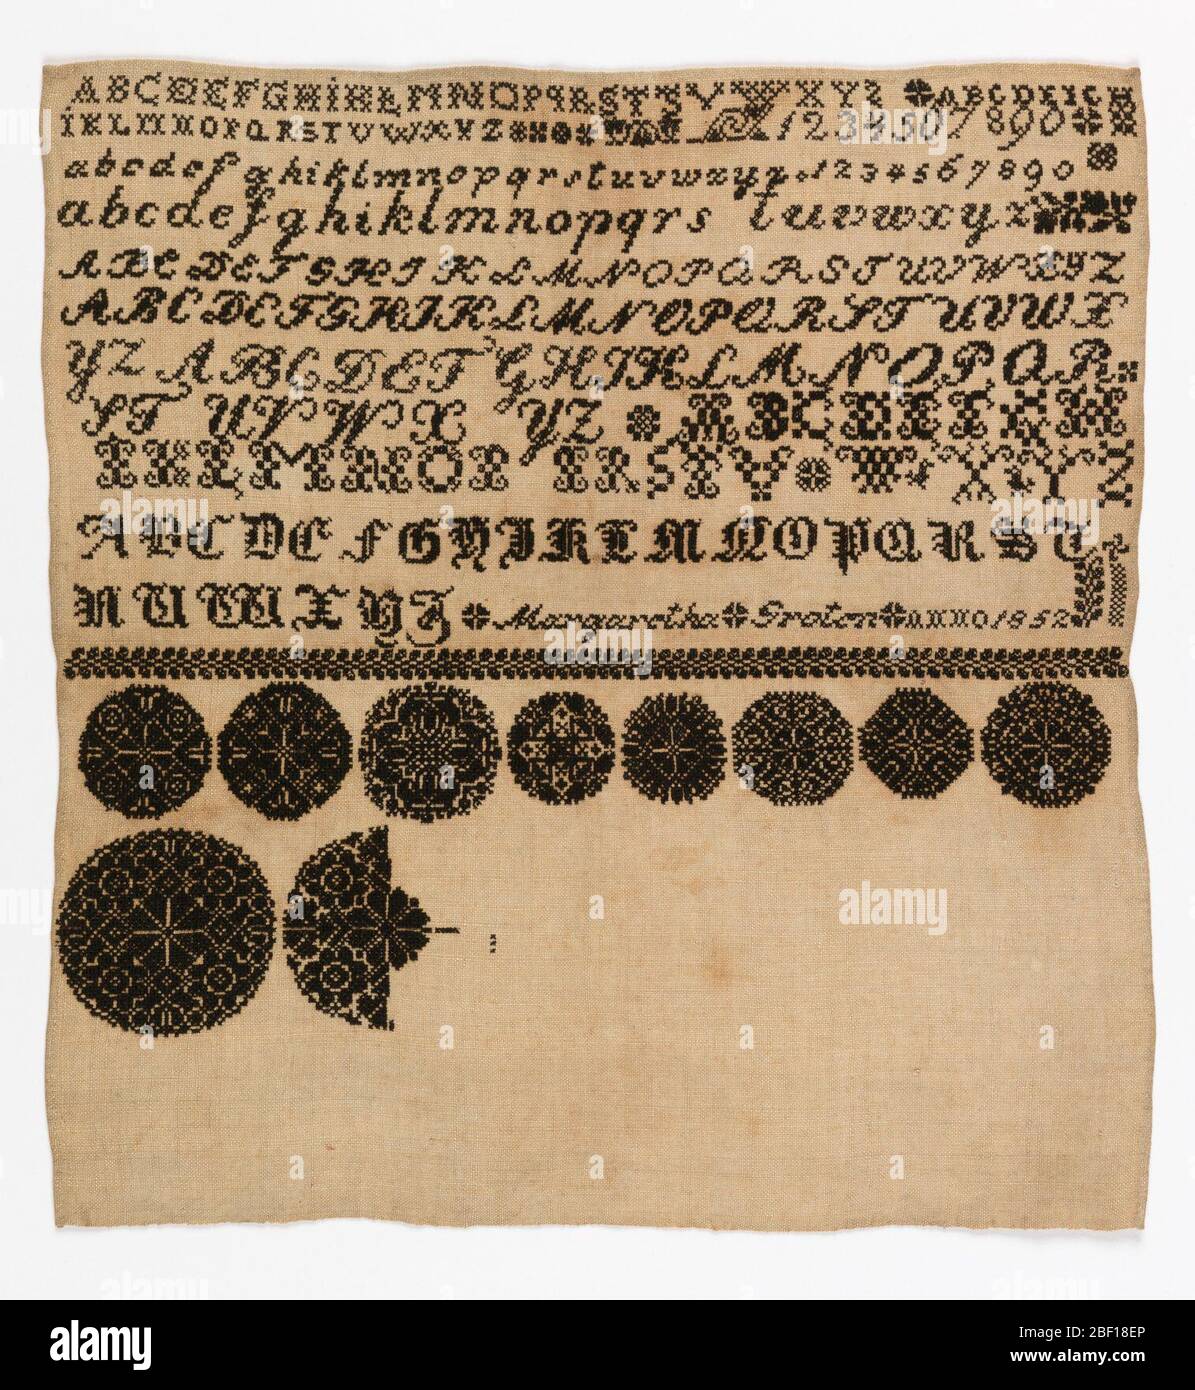 A B C D E F G H I K L M N O P Q R S T U V W X Y Z A B C D E F G H
I K L M N O P Q R S T V W X Y Z 1 2 3 4 5 6 7 8 9 0
a b c d e f g h i k l m n o p q r s t u v w x y z . 1 2 3 4 5 6 7 8 9 0
a b c d e f g h i k l m n o p q r s t u v w x y z
A B C D E F G H I K L M N O P Q R S T U V W X Y Z
A B C D E F G H I K L M N O P Q R S T U V W X
Y Z A B C D E F G H I K L M N O P Q R
S T U V W X Y Z A B C D E F G H
I K L M N O P Q R S T V W X Y Z
A B C D E F G H I K L M N O P Q R S T
U W X Y Z Margaretha Groten ANNO 1852
alamy
Image ID: 2BF18EP
www.alamy.com